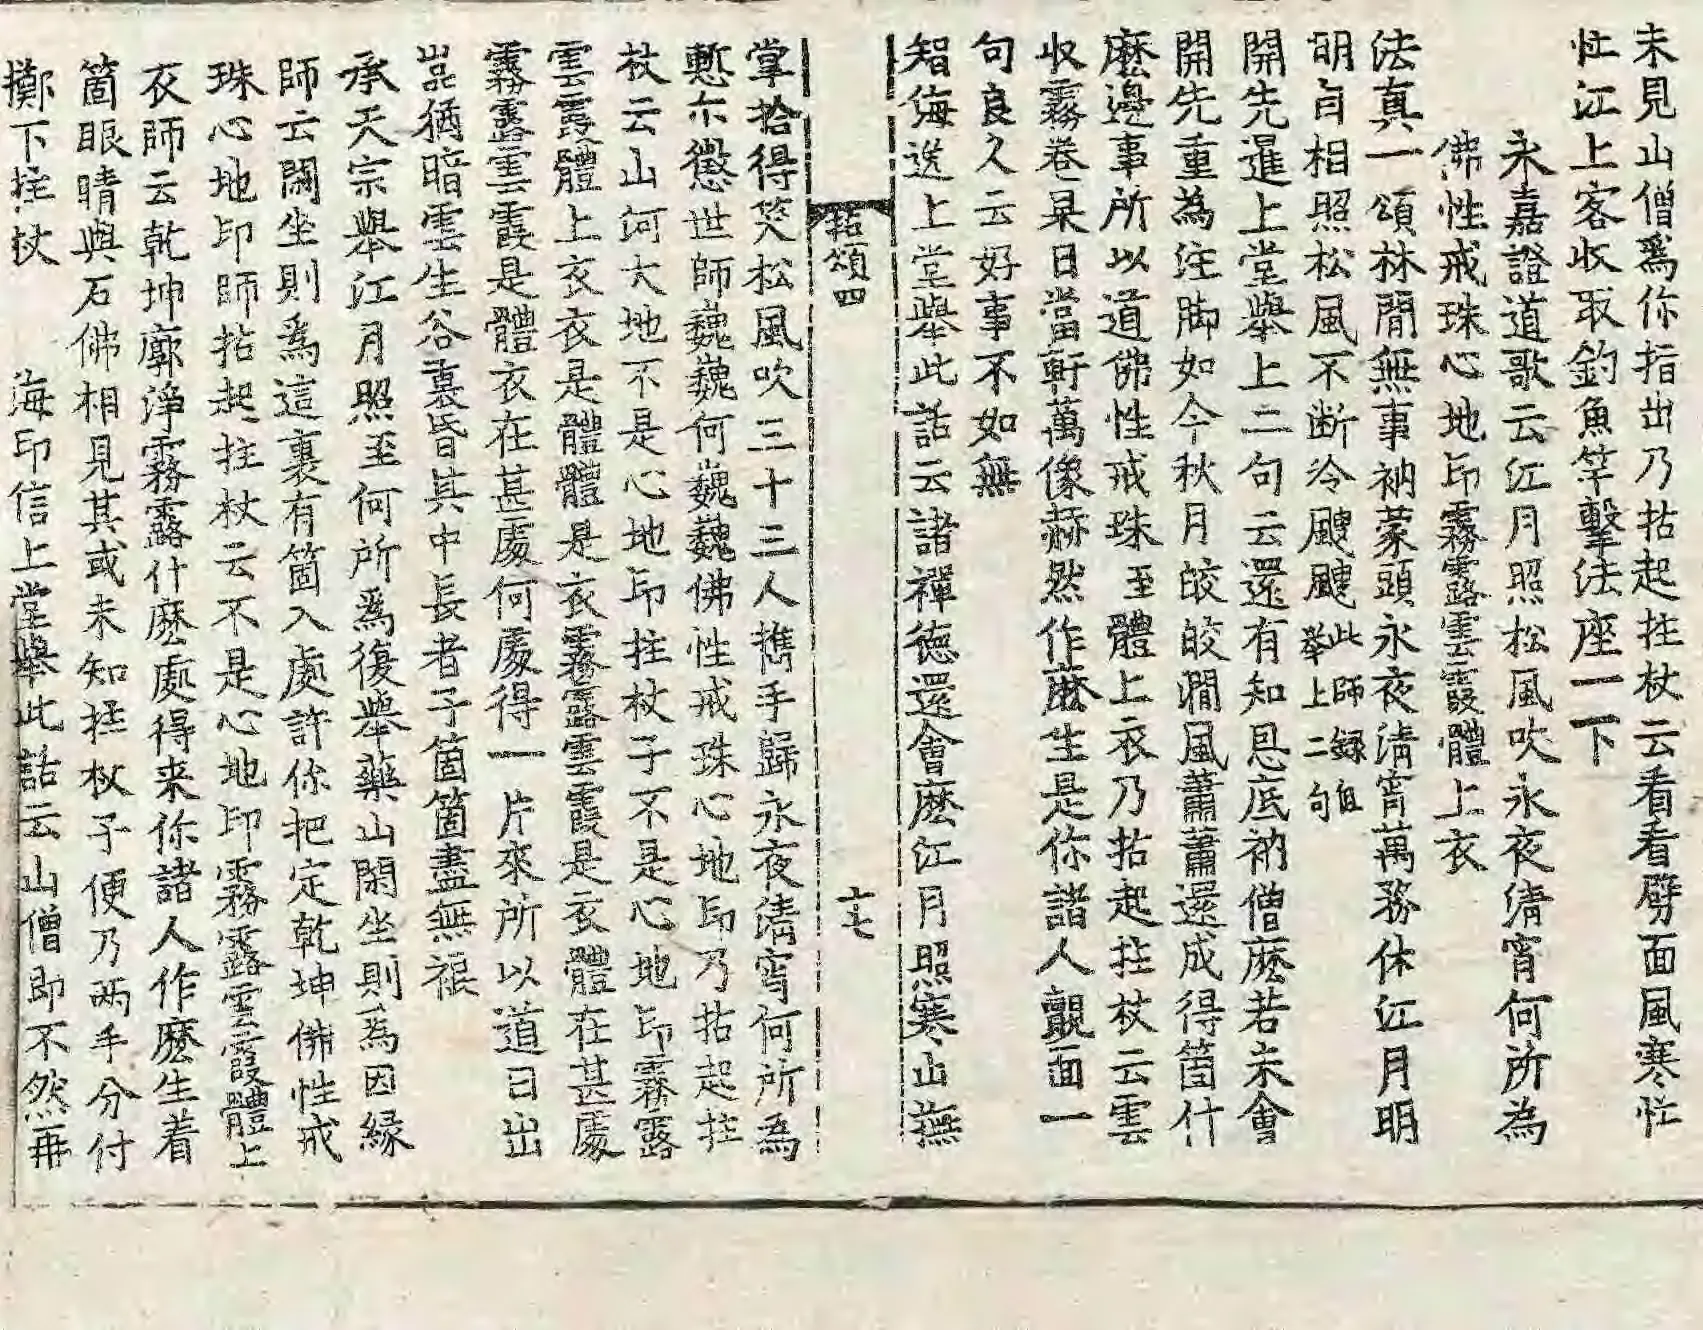 未見山僧爲你指出乃拈起拄杖云看看劈面風寒忙
忙江上客收取釣魚竿擊法座一下
永嘉證道歌云江月照松風吹永夜淸宵何所為
佛性戒珠心地印霧露雲霞體上衣
法真一頌林間無事衲蒙頭永夜淸宵萬務休江月明
明自相照松風不断冷颼颼此師録但舉上二句
開先暹上堂舉上二句云還有知恩底衲僧麽若未會
開先重為注脚如今秋月皎皎澗風蕭蕭還成得箇什
麽邊事所以道佛性戒珠至體上衣乃拈起拄杖云雲
收霧卷杲日當軒萬像赫然作麽生是你諸人覿面一
句良久云好事不如無
智海逸上堂舉此話云諸禪德還會麽江月照寒山撫
拈頌四
十七
掌拾得笑松風吹三十三人擕手歸永夜淸宵何所為
慙尒懲世師巍巍何巍巍佛性戒珠心地印乃拈起拄
杖云山河大地不是心地印拄杖子不是心地印霧露
雲霞體上衣衣是體體是衣霧露雲霞是衣體在甚處
霧露雲霞是體衣在甚處何處得一片來所以道日出
嵓猶暗雲生谷裏昏其中長者子箇箇盡無裩
承天宗舉江月照至何所爲復舉藥山閑坐則為因緣
師云閑坐則爲這裏有箇入處許你把定乾坤佛性戒
珠心地印師拈起拄杖云不是心地印霧露雲霞體上
衣師云乾坤廓淨霧露什麽處得来你諸人作麽生着
箇眼睛與石佛相見其或未知拄杖子便乃兩手分付
擲下拄杖
海印信上堂舉此話云山僧即不然再